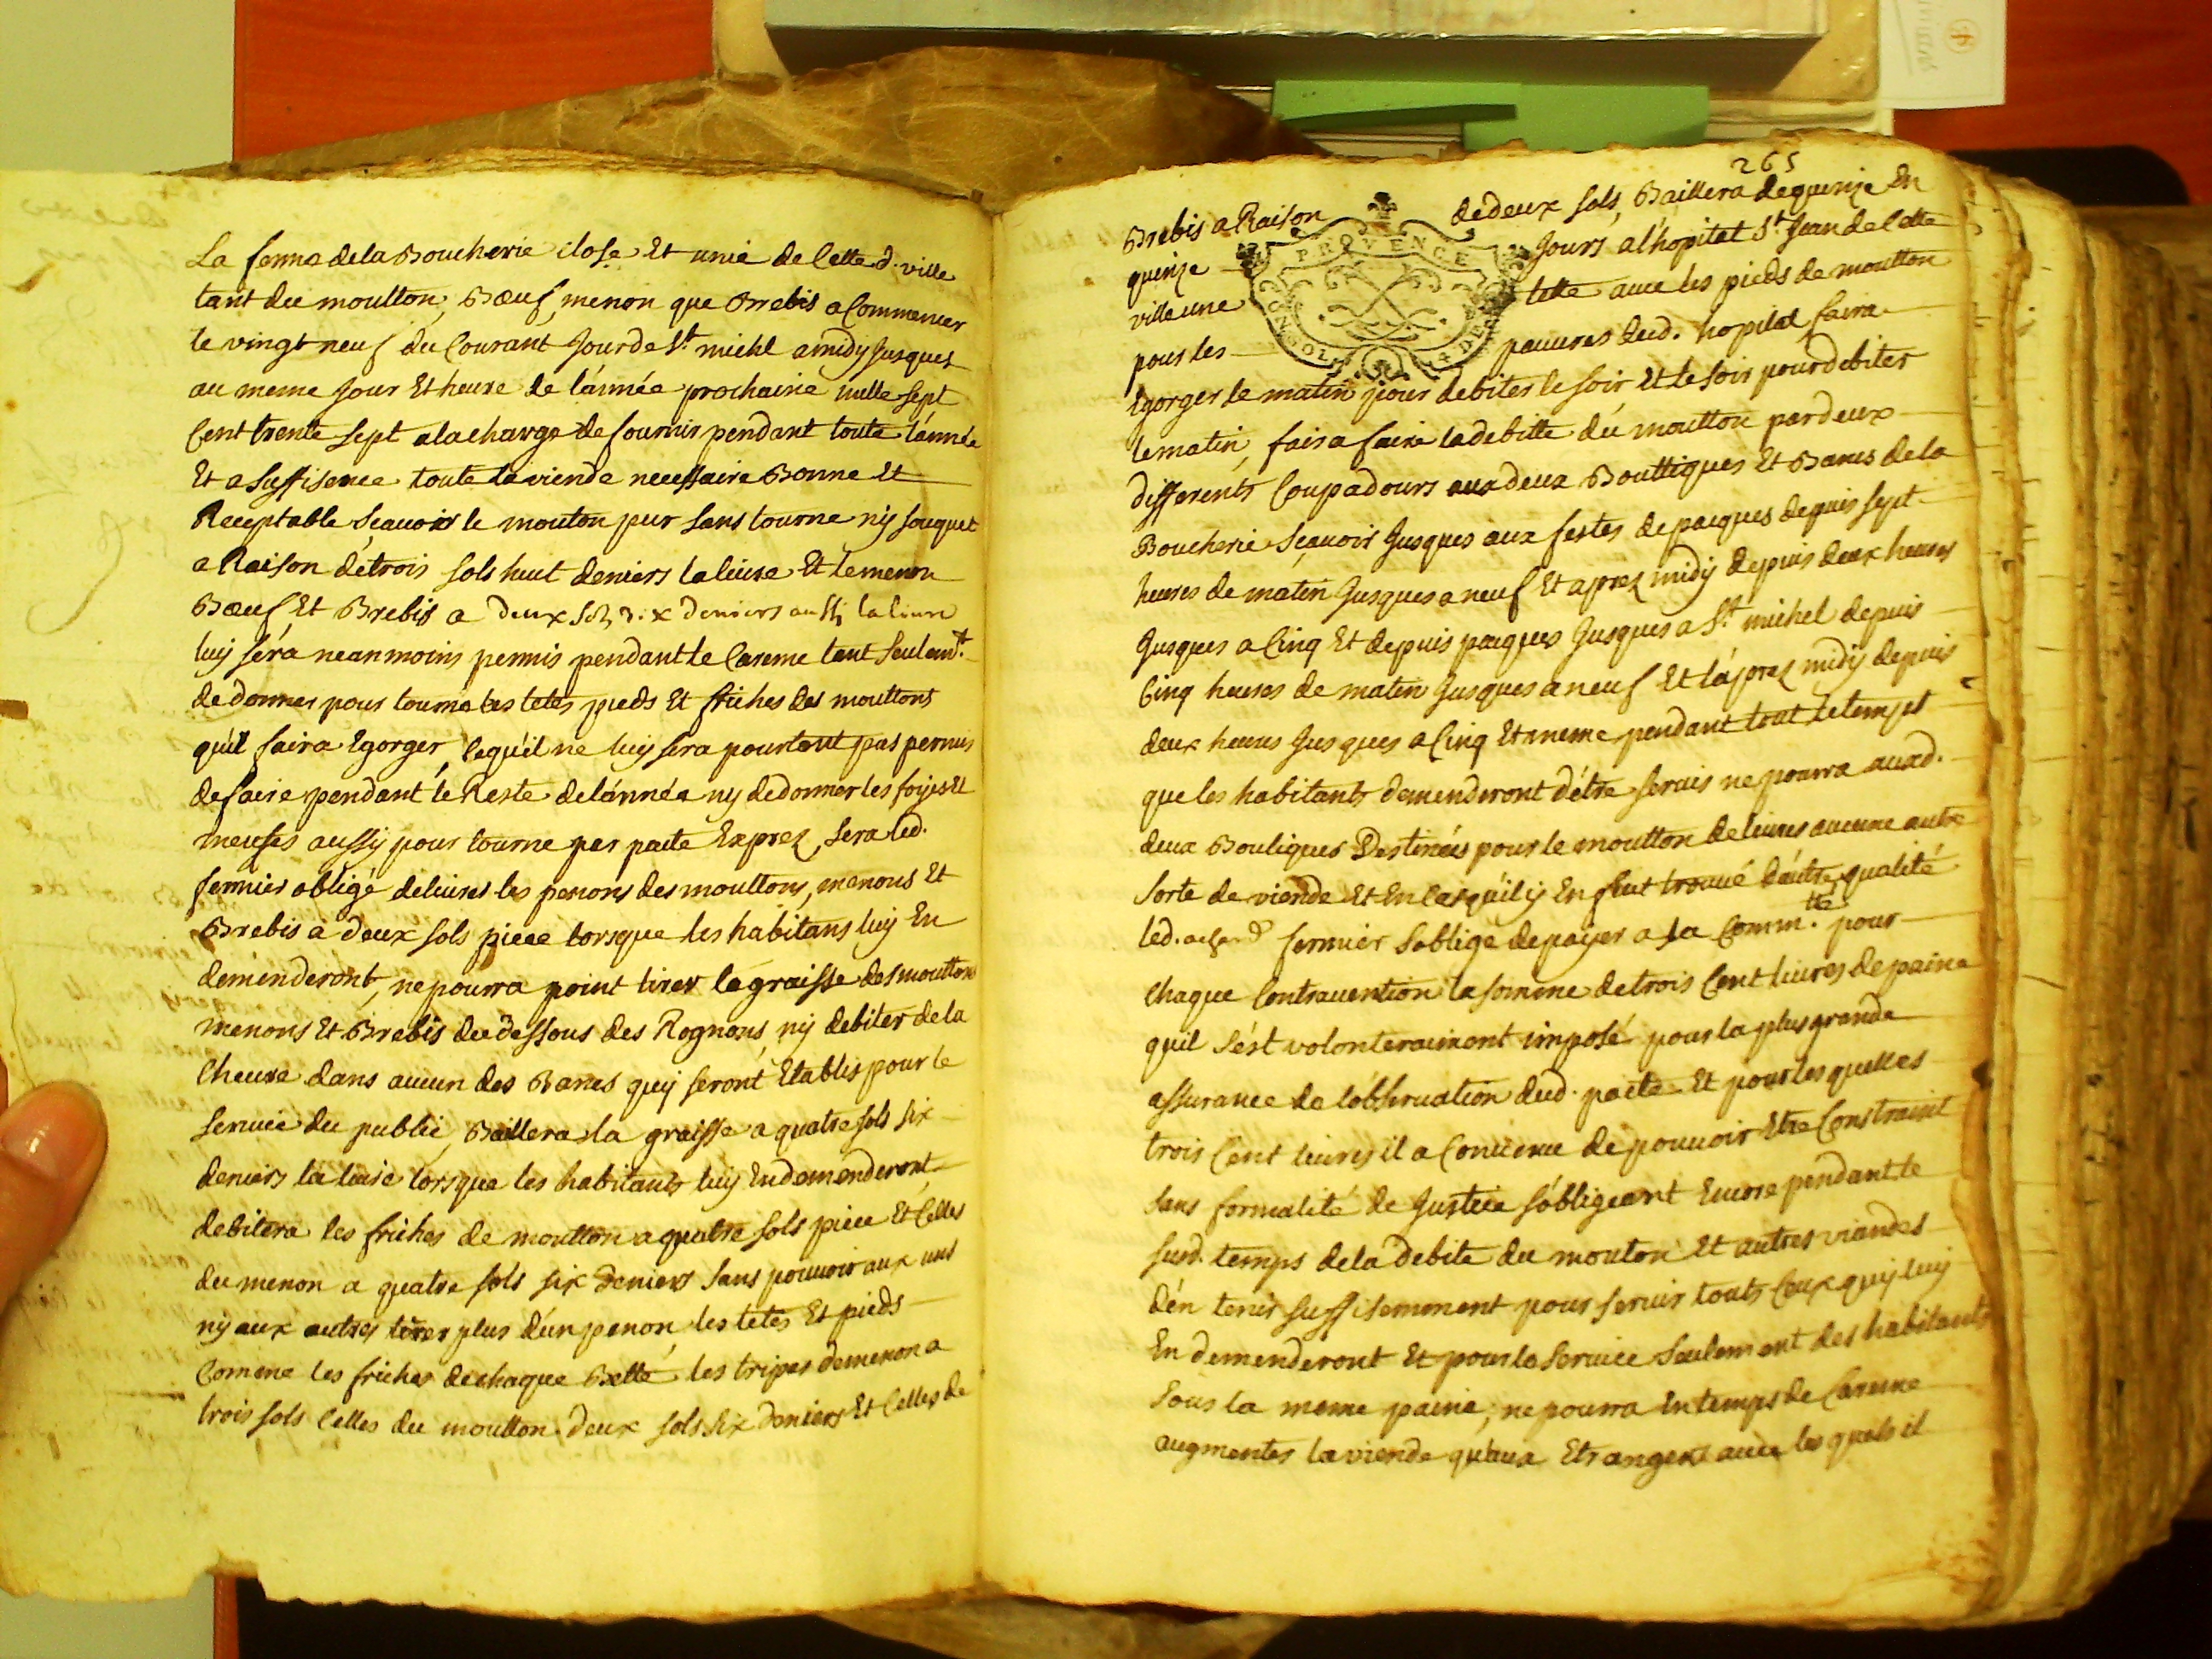 La ferme dela Boucherie close Et unie de Cette d. ville
tant du moutton, Bœuf, menon que Brebis a Commencer
le vingt neuf du Courant Jour de St. michl a midy Jusques
au meme Jour Et heure de l'année prochaine mille sept
Cent trente sept ala charge de fournir pendant toute l'année
Et a suffisence toute la viende necessaire Bonne Et
Receptable Sçauoir le mouton pur sans tourne ny souquet
a Raison de trois sols huit deniers la liure Et le menon
Bœuf Et Brebis a deux sols dix deniers aussi la liure
luy séra neanmoins permis pendant le Careme tant Seulemt.
de donner pour tourne les tetes pieds Et friches des mouttons
qu'il faira Egorger, Ce qu'il ne luy sera pourtant pas permis
de faire pendant le Reste de l'année ny de donner les foyes Et
meuses aussy pour tourne par pacte Exprez, sera led.
fermier obligé deliurer les penons des mouttons, menons Et
Brebis a deux sols piece lorsque les habitans luy En
demenderont, ne pourra point tirer la graisse des mouttons
menons Et Brebis du dessous des Rognons ny debiter de la
Cheure dans aucun des Bancs quy seront Etablis pour le
seruice du public, Baillera la graisse a quatre sols six
deniers la liure lorsque les habitants luy En demenderont
debitera les friches de moutton a quatre sols piece Et Celles
du menon a quatre sols six deniers sans pouuoir aux uns
ny aux autres tirer plus d'un penon, les tetes Et pieds
Comme les friches de chaque Bette, les tripes de menon a
trois sols Celles du moutton deux sols six deniers Et Celles de
265
Brebis a Raison de deux sols, Baillera de quinze En
quinze Jours a l'hopital St. Jean de Cette
ville une tette auec les pieds de moutton
pour les pauures dud. hopital faira
PROVENCE
Egorger le matin pour debiter le soir Et le soir pour debiter
le matin, faira faire la debitte du moutton par deux
differents Coupadours aux deux Bouttiques Et Bancs de la
Boucherie Sçauoir Jusques aux festes de pacques depuis sept
heures de matin Jusques a neuf Et aprez midy depuis deux heures
Jusques a Cinq Et depuis pacques Jusques a St. michel depuis
Cinq heures de matin Jusques a neuf Et l'aprez midy depuis
deux heures Jusques a Cinq Et meme pendant tout le temps
que les habitants demenderont d'étre seruis ne pourra auxd.
deux Boutiques Destinées pour le moutton deliurer aucune autre
sorte de viende Et En Cas qu'il y En fut trouué d'autre qualité
led. fermier s'oblige de payer a la Commté. pour
chaque Contrauention la somme de trois Cent liures de paine
qu'il s'ést volonterairement imposé pour la plus grande
assurance de l'obseruation dud. pacte Et pour les quelles
trois Cent liures il a Conuenu de pouuoir Etre Constraint
sans formalité de Justice s'obligeant Encore pendant le
susd. temps de la debite du mouton Et autres viandes
d'én tenir suffisemment pour seruir touts Ceux quy luy
En demenderont Et pour le seruice Seulement des habitants
sous la meme paine, ne pourra En temps de Careme
augmenter la viende qu'aux Etrangers auec les quels il